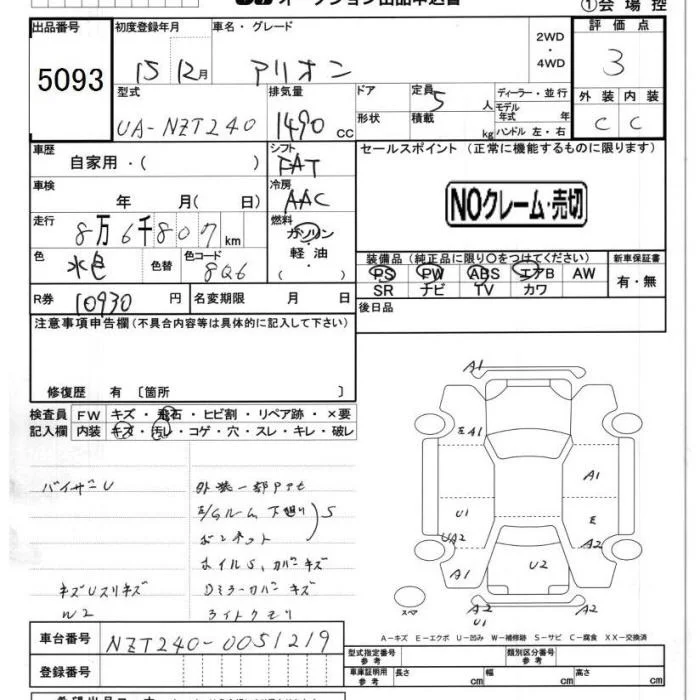 オークション出品申込書
①会場控
出品番号
5093
初度登録年月
15 12月
車名・グレード
アリオン
2WD
・
4WD
評価点
3
外装 内装
C C
型式
UA-NZT240
排気量
1490 cc
ドア
形状
定員 5 人
積載 kg
ディーラー・並行
モデル年式 年
ハンドル 左・右
車歴
自家用・( )
シフト
FAT
セールスポイント (正常に機能するものに限ります)
NOクレーム・売切
車検
年 月( 日)
冷房
AAC
走行
8万6千807km
燃料
ガソリン
・
軽油
( )
色
水色
色替
色コード
8Q6
装備品 (純正品に限り○をつけてください)
新車保証書
PS PW ABS エアB AW
SR ナビ TV カワ
有・無
R券 10930 円
名変期限 月 日
後日品
注意事項申告欄 (不具合内容等は具体的に記入して下さい)
修復歴 有 〔箇所 〕
検査員記入欄
FW キズ・飛石・ヒビ割・リペア跡・×要
内装 キズ・汚レ・コゲ・穴・スレ・キレ・破レ
バイザーU
外装一部
E/Gルーム 下廻り S
ボンネット
ホイルS、カバーキズ
キズUスリキズ
W2
Dミラーカバーキズ
ライトクモリ
A1
A1
A1
U1
E
UA2
A2
A1
U2
スペア
A2
U1
A2
A-キズ E-エクボ U-凹み W-補修跡 S-サビ C-腐食 XX-交換済
車台番号
NZT240-0051219
登録番号
型式指定番号
参考
類別区分番号
参考
車庫証明用
参考
長さ cm
幅 cm
高さ cm